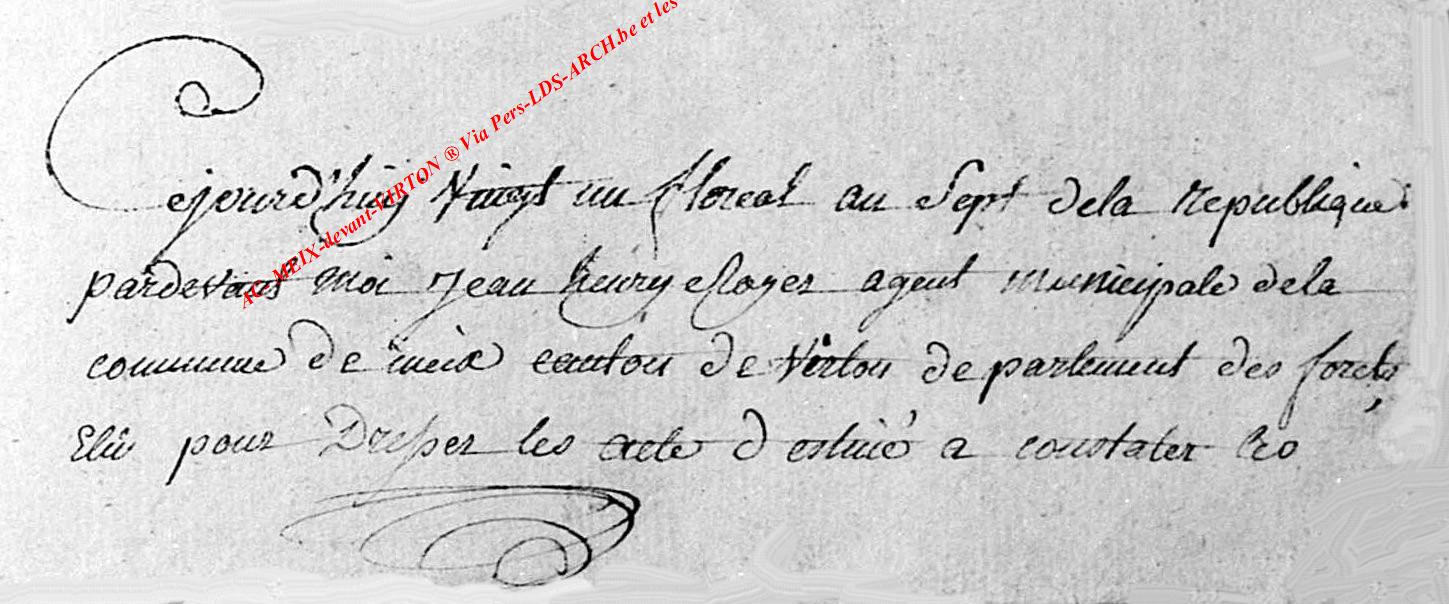 AC MEIX-devant-VIRTON ® Via Pers-LDS-ARCH.be et les
Cejourd'huij Vingt un floreal an Sept dela Republique
pardevant moi Jean henry agent municipale dela
commune de meix canton de Virton departement des forets
Elû pour Dresser les acte destiné a constater les